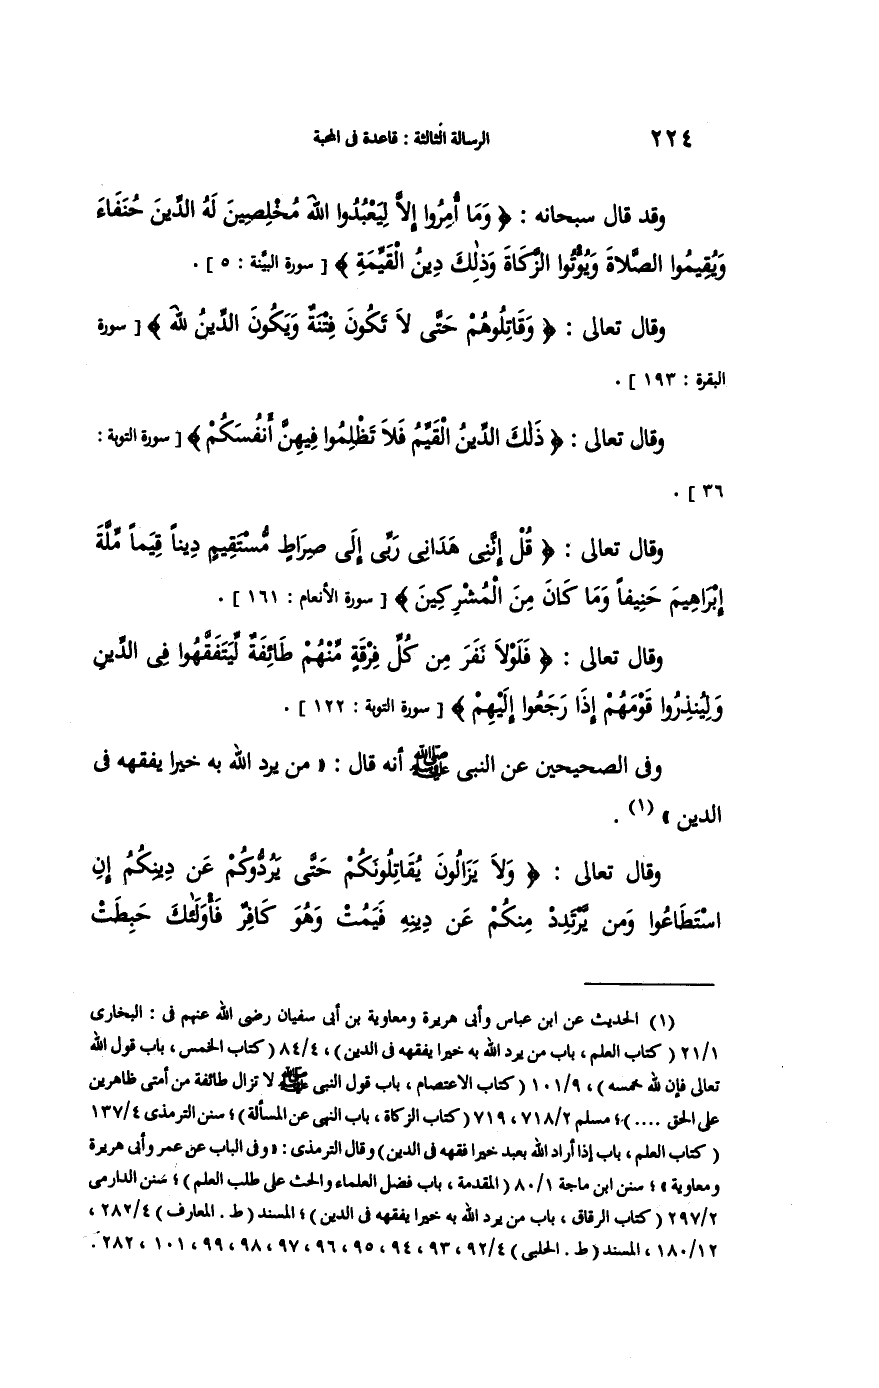 ٢٢٤ الرسالة الثالثة : قاعدة فى المحبة
وقد قال سبحانه : ﴿ وَمَا أُمِرُوا إِلاَّ لِيَعْبُدُوا اللهَ مُخْلِصِينَ لَهُ الدِّينَ حُنَفَاءَ
وَيُقِيمُوا الصَّلاةَ وَيُؤْتُوا الزَّكَاةَ وَذٰلِكَ دِينُ الْقَيِّمَةِ ﴾ [ سورة البيّنة : ٥ ] .
وقال تعالى : ﴿ وَقَاتِلُوهُمْ حَتَّى لاَ تَكُونَ فِتْنَةٌ وَيَكُونَ الدِّينُ للهِ ﴾ [ سورة
البقرة : ١٩٣ ] .
وقال تعالى : ﴿ ذَلٰكَ الدِّينُ الْقَيِّمُ فَلاَ تَظْلِمُوا فِيهِنَّ أَنفُسَكُمْ ﴾ [ سورة التوبة :
٣٦ ] .
وقال تعالى : ﴿ قُلْ إِنَّنِى هَدَانِى رَبِّى إِلَى صِرَاطٍ مُّسْتَقِيمٍ دِيناً قِيَماً مِّلَّةَ
إِبْرَاهِيمَ حَنِيفاً وَمَا كَانَ مِنَ الْمُشْرِكِينَ ﴾ [ سورة الأنعام : ١٦١ ] .
وقال تعالى : ﴿ فَلَوْلاَ نَفَرَ مِن كُلِّ فِرْقَةٍ مِّنْهُمْ طَائِفَةٌ لِّيَتَفَقَّهُوا فِى الدِّينِ
وَلِيُنذِرُوا قَوْمَهُمْ إِذَا رَجَعُوا إِلَيْهِمْ ﴾ [ سورة التوبة : ١٢٢ ] .
وفى الصحيحين عن النبى ﷺ أنه قال : « من يرد الله به خيرا يفقهه فى
الدين » (١) .
وقال تعالى : ﴿ وَلاَ يَزَالُونَ يُقَاتِلُونَكُمْ حَتَّى يَرُدُّوكُمْ عَن دِينِكُمُ إِنِ
اسْتَطَاعُوا وَمَن يَّرْتَدِدْ مِنكُمْ عَن دِينِهِ فَيَمُتْ وَهُوَ كَافِرٌ فَأُولَٰئِكَ حَبِطَتْ
(١) الحديث عن ابن عباس وأبى هريرة ومعاوية بن أبى سفيان رضى الله عنهم فى : البخارى
٢١/١ ( كتاب العلم ، باب من يرد الله به خيرا يفقهه فى الدين ) ، ٨٤/٤ ( كتاب الخمس ، باب قول الله
تعالى فإن لله خمسه ) ، ١٠١/٩ ( كتاب الاعتصام ، باب قول النبى ﷺ لا تزال طائفة من أمتى ظاهرين
على الحق .... ) ؛ مسلم ٧١٨/٢ ، ٧١٩ ( كتاب الزكاة ، باب النهى عن المسألة ) ؛ سنن الترمذى ١٣٧/٤
( كتاب العلم ، باب إذا أراد الله بعبد خيرا فقهه فى الدين ) وقال الترمذى : « وفى الباب عن عمر وأبى هريرة
ومعاوية » ؛ سنن ابن ماجة ٨٠/١ ( المقدمة ، باب فضل العلماء والحث على طلب العلم ) ؛ سنن الدارمى
٢٩٧/٢ ( كتاب الرقاق ، باب من يرد الله به خيرا يفقهه فى الدين ) ؛ المسند ( ط . المعارف ) ٢٨٢/٤ ،
١٨٠/١٢ ، المسند ( ط . الحلبى ) ٩٢/٤ ، ٩٣ ، ٩٤ ، ٩٥ ، ٩٦ ، ٩٧ ، ٩٨ ، ٩٩ ، ١٠١ ، ٢٨٢ .